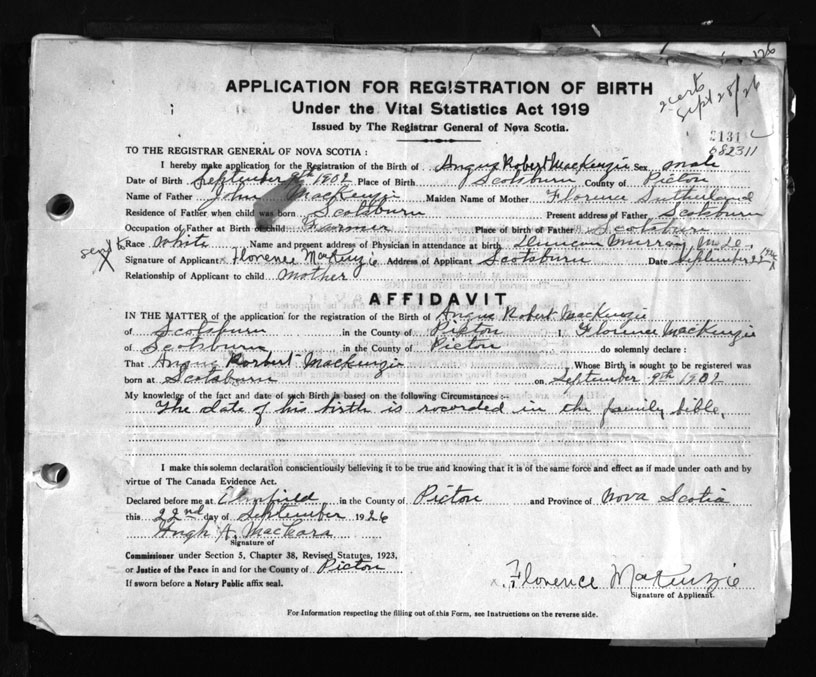 126
APPLICATION FOR REGISTRATION OF BIRTH
Under the Vital Statistics Act 1919
Issued by The Registrar General of Nova Scotia.
2 certs
Sept 28/26
682311
TO THE REGISTRAR GENERAL OF NOVA SCOTIA :
I hereby make application for the Registration of the Birth of Angus Robert MacKenzie Sex male
Date of Birth September 9th 1902 Place of Birth Scotsburn County of Picton
Name of Father John MacKenzie Maiden Name of Mother Florence Sutherland
Residence of Father when child was born Scotsburn Present address of Father Scotsburn
Occupation of Father at Birth of child Farmer Place of birth of Father Scotsburn
send to
Race White Name and present address of Physician in attendance at birth Duncan Murray M.D.
Signature of Applicant x Florence MacKenzie Address of Applicant Scotsburn Date September 22nd
Relationship of Applicant to child mother
AFFIDAVIT
IN THE MATTER of the application for the registration of the Birth of Angus Robert MacKenzie
of Scotsburn in the County of Picton I, Florence MacKenzie
of Scotsburn in the County of Picton do solemnly declare :
That Angus Robert MacKenzie Whose Birth is sought to be registered was
born at Scotsburn on September 9th 1902
My knowledge of the fact and date of such Birth is based on the following Circumstances :-
The date of his birth is recorded in the family bible.
I make this solemn declaration conscientiously believing it to be true and knowing that it is of the same force and effect as if made under oath and by
virtue of The Canada Evidence Act.
Declared before me at Elmsfield in the County of Picton and Province of Nova Scotia
this 22nd day of September 1926
Hugh A. MacKara
Signature of
Commissioner under Section 5, Chapter 38, Revised Statutes, 1923,
or Justice of the Peace in and for the County of Picton
If sworn before a Notary Public affix seal.
x Florence MacKenzie
Signature of Applicant.
For Information respecting the filling out of this Form, see Instructions on the reverse side.